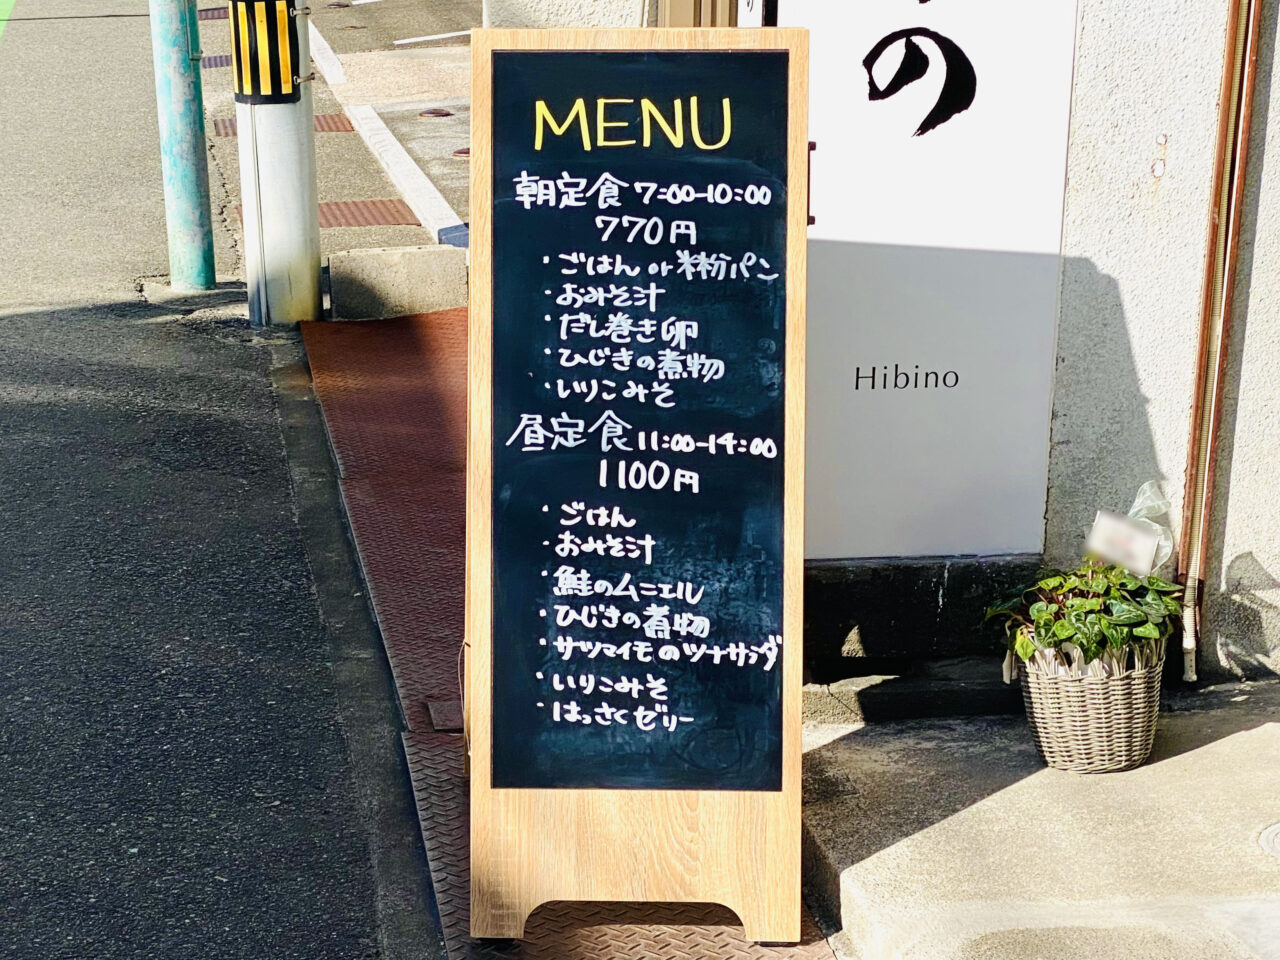 MENU
朝定食 7:00-10:00
770円
・ごはん or 米粉パン
・おみそ汁
・だし巻き卵
・ひじきの煮物
・いりこみそ
昼定食 11:00-14:00
1100円
・ごはん
・おみそ汁
・鮭のムニエル
・ひじきの煮物
・サツマイモのツナサラダ
・いりこみそ
・はっさくゼリー
の
Hibino